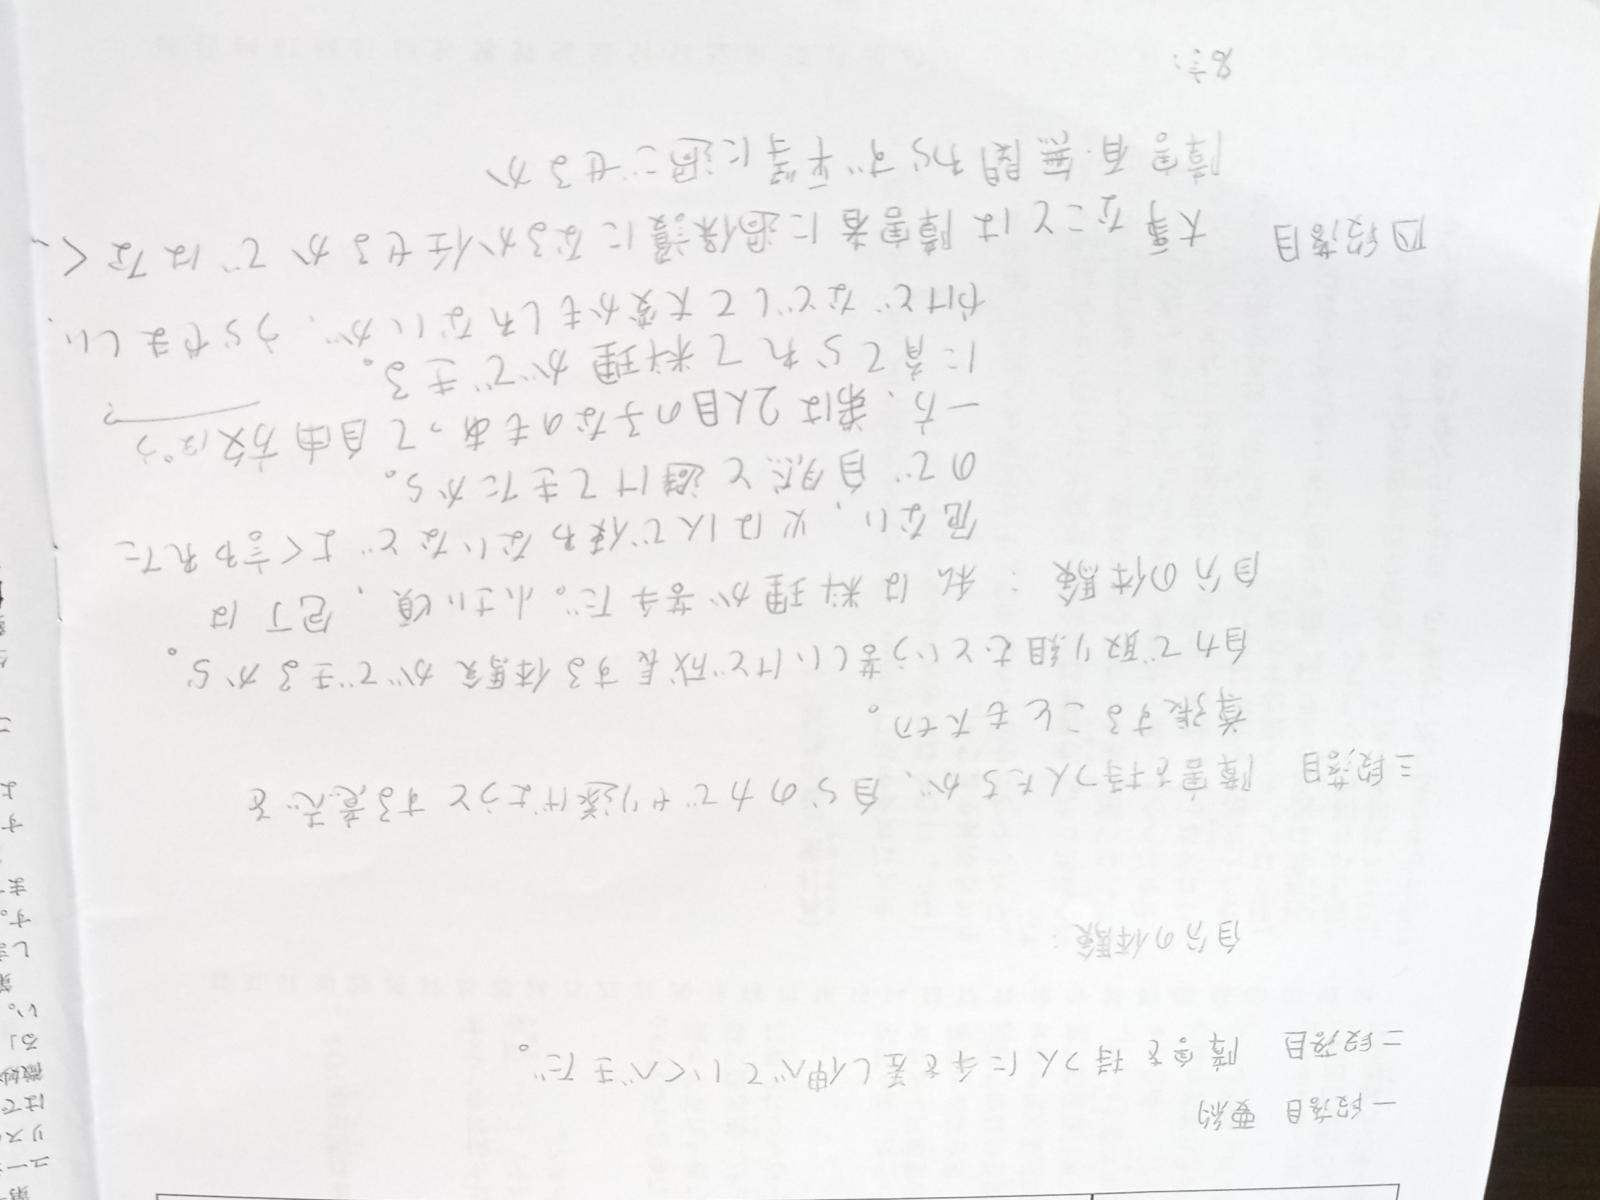 一段落目 要約
二段落目 障害を持つ人に手を差し伸べていくべきだ。
自分の体験:
三段落目 障害を持つ人たちが、自らの力でやり遂げようとする意志を
尊張することも大切。
自力で取り組むという苦しいけど成長する体験ができるから。
自分の体験: 私は料理が苦手だ。小さい頃、包丁は
危ない、火は1人で使わないなどよく言われた
ので自然と避けてきたから。
一方、弟は2人目の子なのもあって自由方文(ほう)
に育てられて料理ができる。
やけどなどして大変かもしれないが、うらやましい、
四段落目 大事なことは障害者に過保護になるか任せるかではなく、
障害有無関わらず平等に過ごせるか
名言: